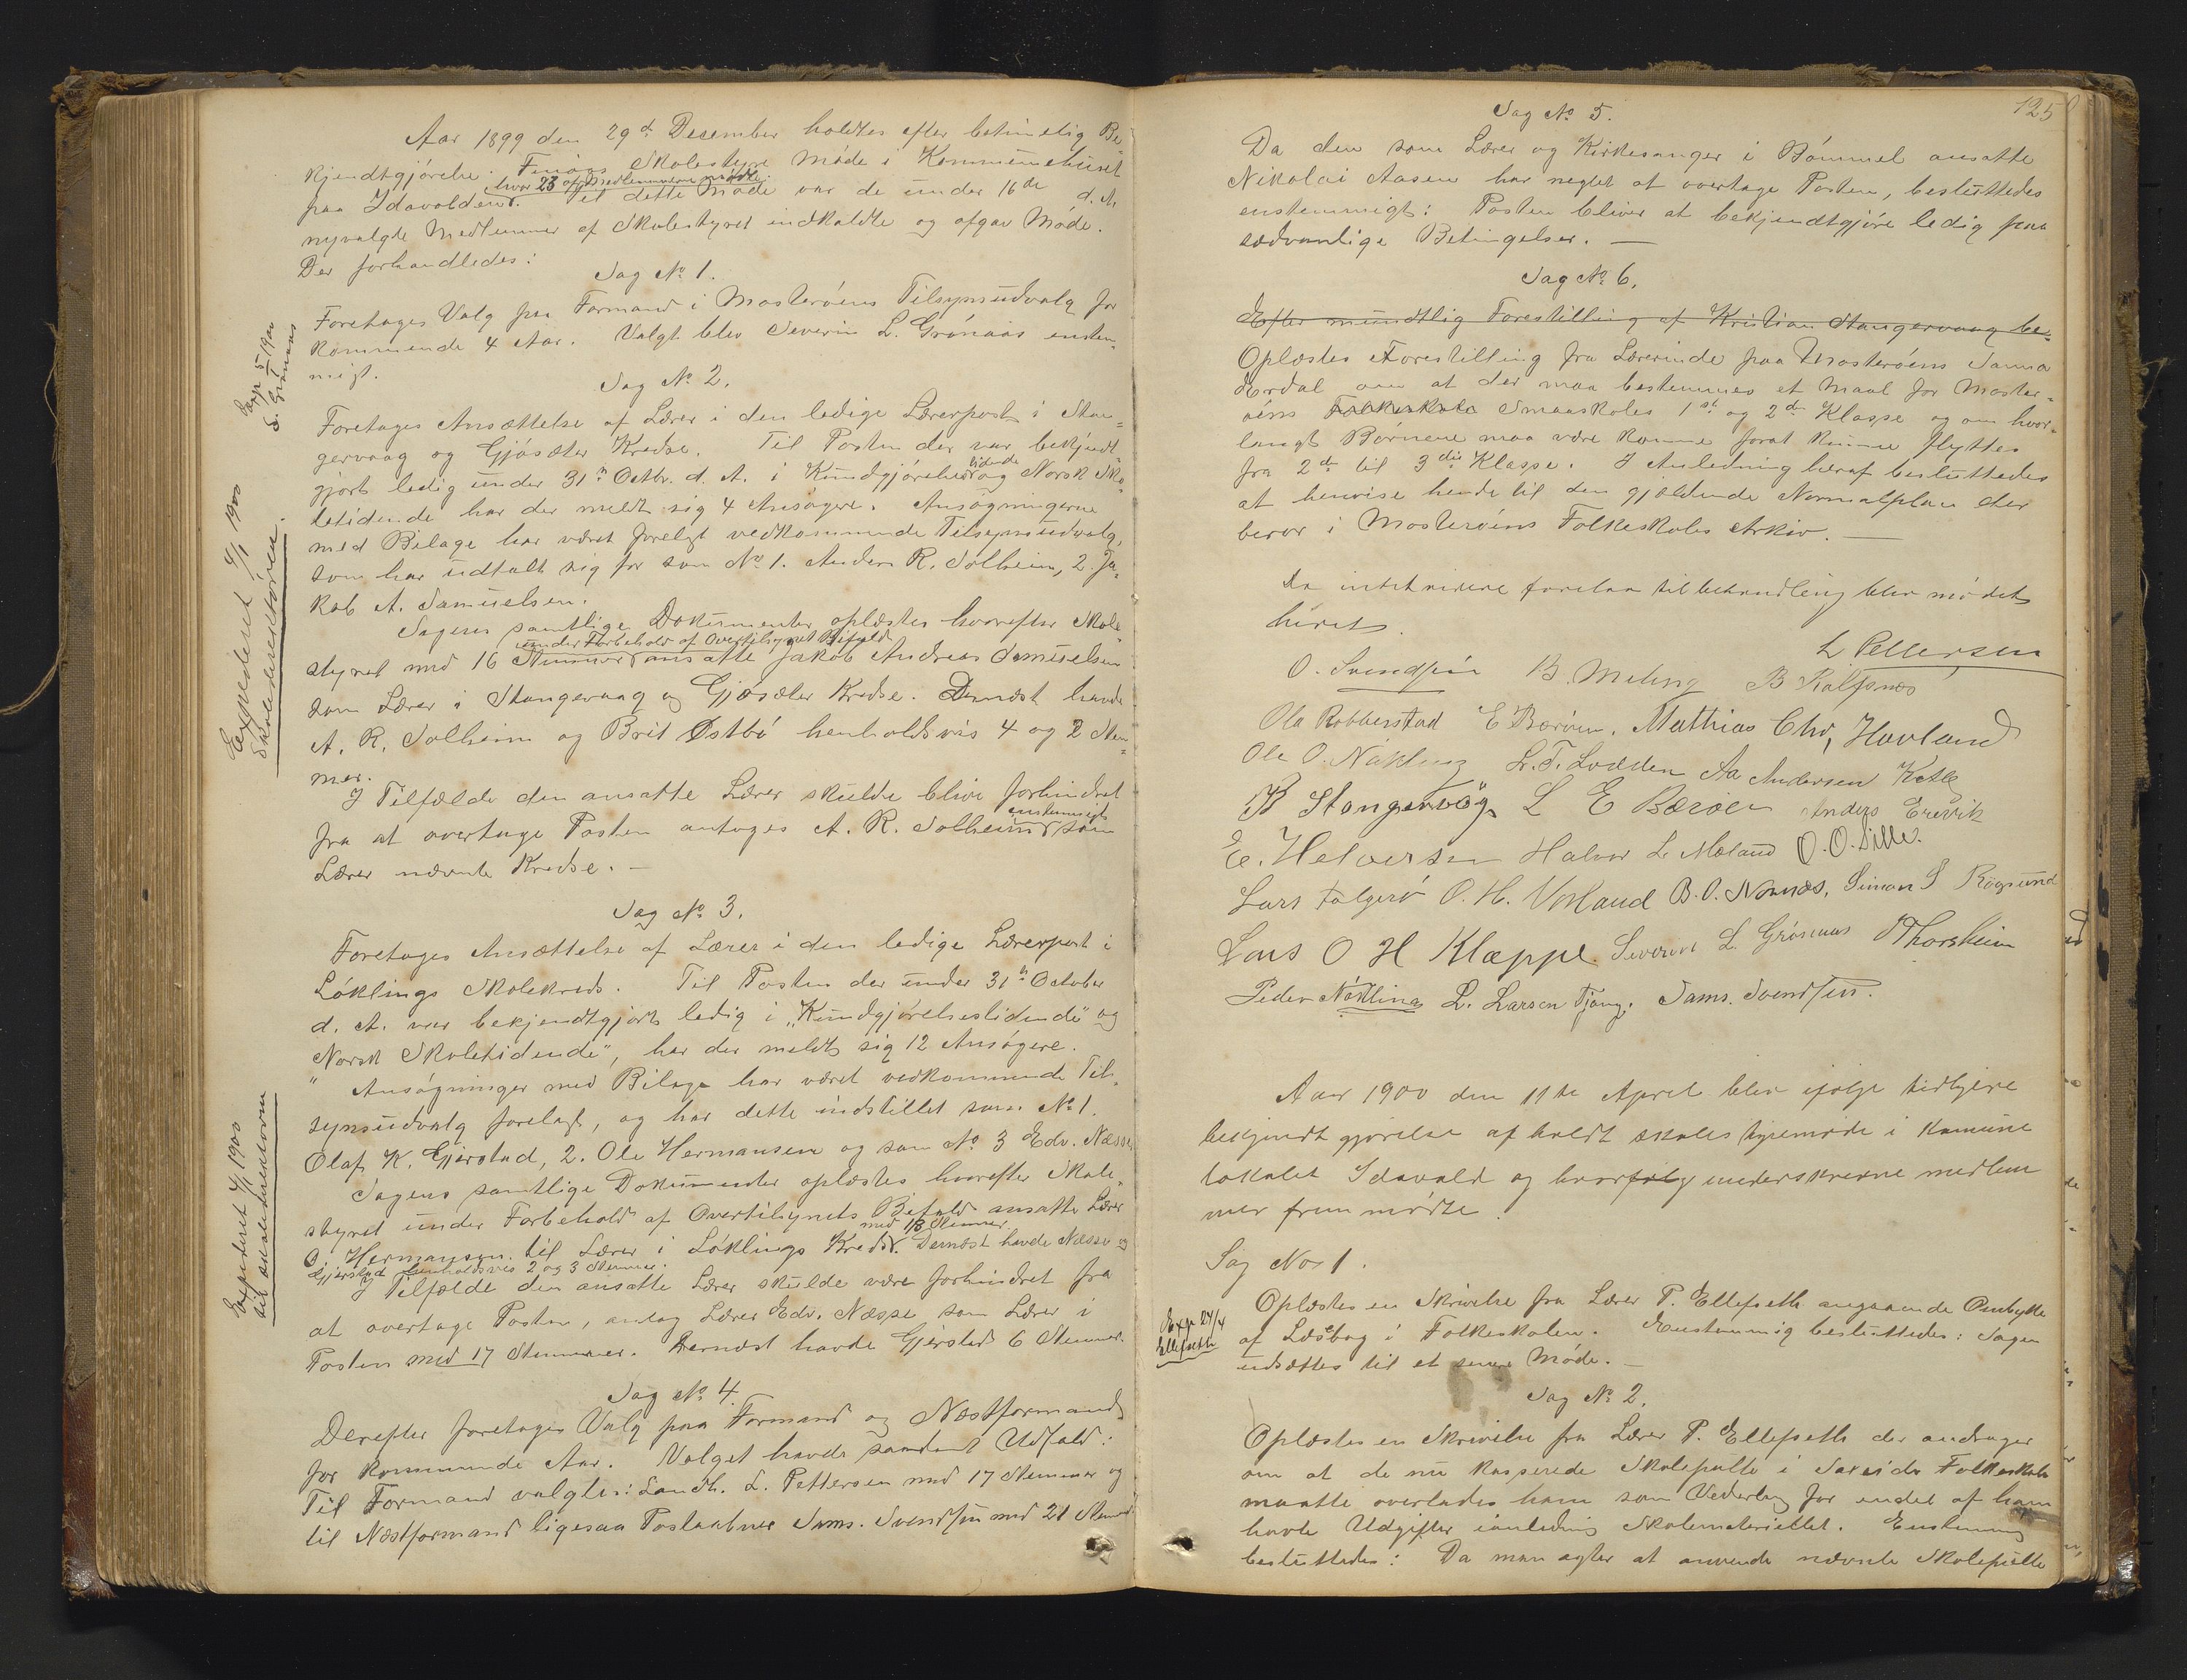 Aar 1899 den 29de Desember holdtes efter betimelig Be-
kjendtgjörelse Finaas Skolestyre Möde i Kommunehuset
hvor 23 af Medlemmerne mödte.
paa Idavolden. Til dette Möde var de under 16de d. M.
nyvalgte Medlemmer af Skolestyret indkaldte og afgav Möde.
Der forhandledes:
Sag No 1.
Foretoges Valg paa Formand i Mosteröens Tilsynsudvalg for
kommende 4 Aar. Valgt blev Severin L. Grönaas enstem-
migt.
Expr 5/1 1900
S. Grönaas
Sag No 2.
Foretoges Ansættelse af Lærer i den ledige Lærerpost i Stan-
gervaag og Gjösæter Kredse. Til Posten der var bekjendt-
gjort ledig under 31te Octbr. d. A. i Kundgjörelsestidende og Norsk Sko-
letidende har der meldt sig 4 Ansögere. Ansögningerne
med Bilage har været forelagt vedkommende Tilsynsudvalg,
som har udtalt sig for som No 1. Anders R. Solheim, 2. Ja-
kob A. Samuelsen.
Sagens samtlige Dokumenter oplæstes hvorefter Skole-
under Forbehold af Overtilsynet Bifald
styret med 16 Stemmer ansatte Jakob Andreas Samuelsen
som Lærer i Stangervaag og Gjösæter Kredse. Dernæst havde
A. R. Solheim og Brit Østbö henholdsvis 4 og 2 Stem-
mer.
I Tilfælde den ansatte Lærer skulde blive forhindret
fra at overtage Posten antoges A. R. Solheim enstemmigt som
Lærer nævnte Kredse. —
Expederet 4/1 1900
Skoledirektören.
Sag No 3.
Foretoges Ansættelse af Lærer i den ledige Lærerpost i
Löklings Skolekreds. Til Posten der under 31te October
d. A. var bekjendtgjort ledig i „Kundgjörelsestidende" og
„Norsk Skoletidende", har der meldt sig 12 Ansögere.
Ansögninger med Bilage har været vedkommende Til-
synsudvalg forelagt, og har dette indstillet som No 1.
Olaf K. Gjerstad, 2. Ole Hermansen og som No 3 Edv. Næsse
Sagens samtlige Dokumenter oplæstes hvorefter Skole-
styret under Forbehold af Overtilsynets Bifald ansatte Lærer
med 18 Stemmer.
O. Hermansen til Lærer i Löklings Kreds. Dernæst havde Næsse og
Gjerstad henholdsvis 2 og 3 Stemmer.
I Tilfælde den ansatte Lærer skulde være forhindret fra
at overtage Posten, antog Lærer Edv. Næsse som Lærer i
Posten med 17 Stemmer. Dernæst havde Gjerstad 6 Stemmer.
Expederet 4/1 1900
til skoledirektören
Sag No 4.
Derefter foretoges Valg paa Formand og Næstformand
for kommende Aar. Valget havde saadant Udfald:
Til Formand valgtes: Landh. L. Pettersen med 17 Stemmer og
til Næstformand ligesaa Postaabner Sams. Svendsen med 21 Stemmer
125
Sag No 5.
Da den som Lærer og Kirkesanger i Bömmel ansatte
Nikolai Aasen har negtet at overtage Posten, besluttedes
enstemmigt: Posten bliver at bekjendtgjöre ledig paa
sædvanlige Betingelser. —
Sag No 6.
Efter mundtlig Forestilling af Kristian Stangervaag be-
Oplæstes Forestilling fra Lærerinde paa Mosteröens Sanna
Erdal om at der maa bestemmes et Maal for Moster-
öens Folkeskole Smaaskoles 1ste og 2den Klasse og om hvor-
langt Börnene maa være komne forat kunne flyttes
fra 2den til 3die Klasse. I Anledning heraf besluttedes
at henvise hende til den gjældende Normalplan der
beror i Mosteröens Folkeskoles Arkiv. —
Da intet videre forelaa til behandling blev mödet
hævet.
L Pettersen
O. Svendsen B. Meling B Kalfsnes
Ola Robberstad E Bæröen. Matthias Chr. Hovland
Ole O. Nökling L. T. Lodden Aa Andersen Kalle
K Stangervåg L E Bæröen Anders Ersvik
E. Helversen Halvor L. Mæland O. O. Lille.
Lars Folgerö O. H. Vorland B. O. Nornes. Simon S Rögsund
Lars O H Klæppe. Severin L Grönaas Thorsheim
Peder Nöttling L. Larsen Tjong. Sams. Svendsen.
Aar 1900 den 11te April blev ifölge tidligere
bekjendtgjörelse afholdt skolestyremöde i Komune
lokalet Idavold og hvor underskrevne medlem
mer fremmödte.
Sag No 1.
Oplæstes en Skrivelse fra Lærer P. Ellefseth angaaende Ombytte
af Læsebog i Folkeskolen. Enstemmig besluttedes: Sagen
udsættes til et senere Möde. —
Expr 24/4
Ellefseth
Sag No 2.
Oplæstes en Skrivelse fra Lærer P. Ellefseth der andrager
om at de nu kasserede Skolepulte i Sæeide Folkeskole
maatte overlades ham som Vederlag for endel af ham
havte Udgifter ianledning Skolemateriellet. Enstemmig
besluttedes: Da man agter at anvende nævnte Skolepulte